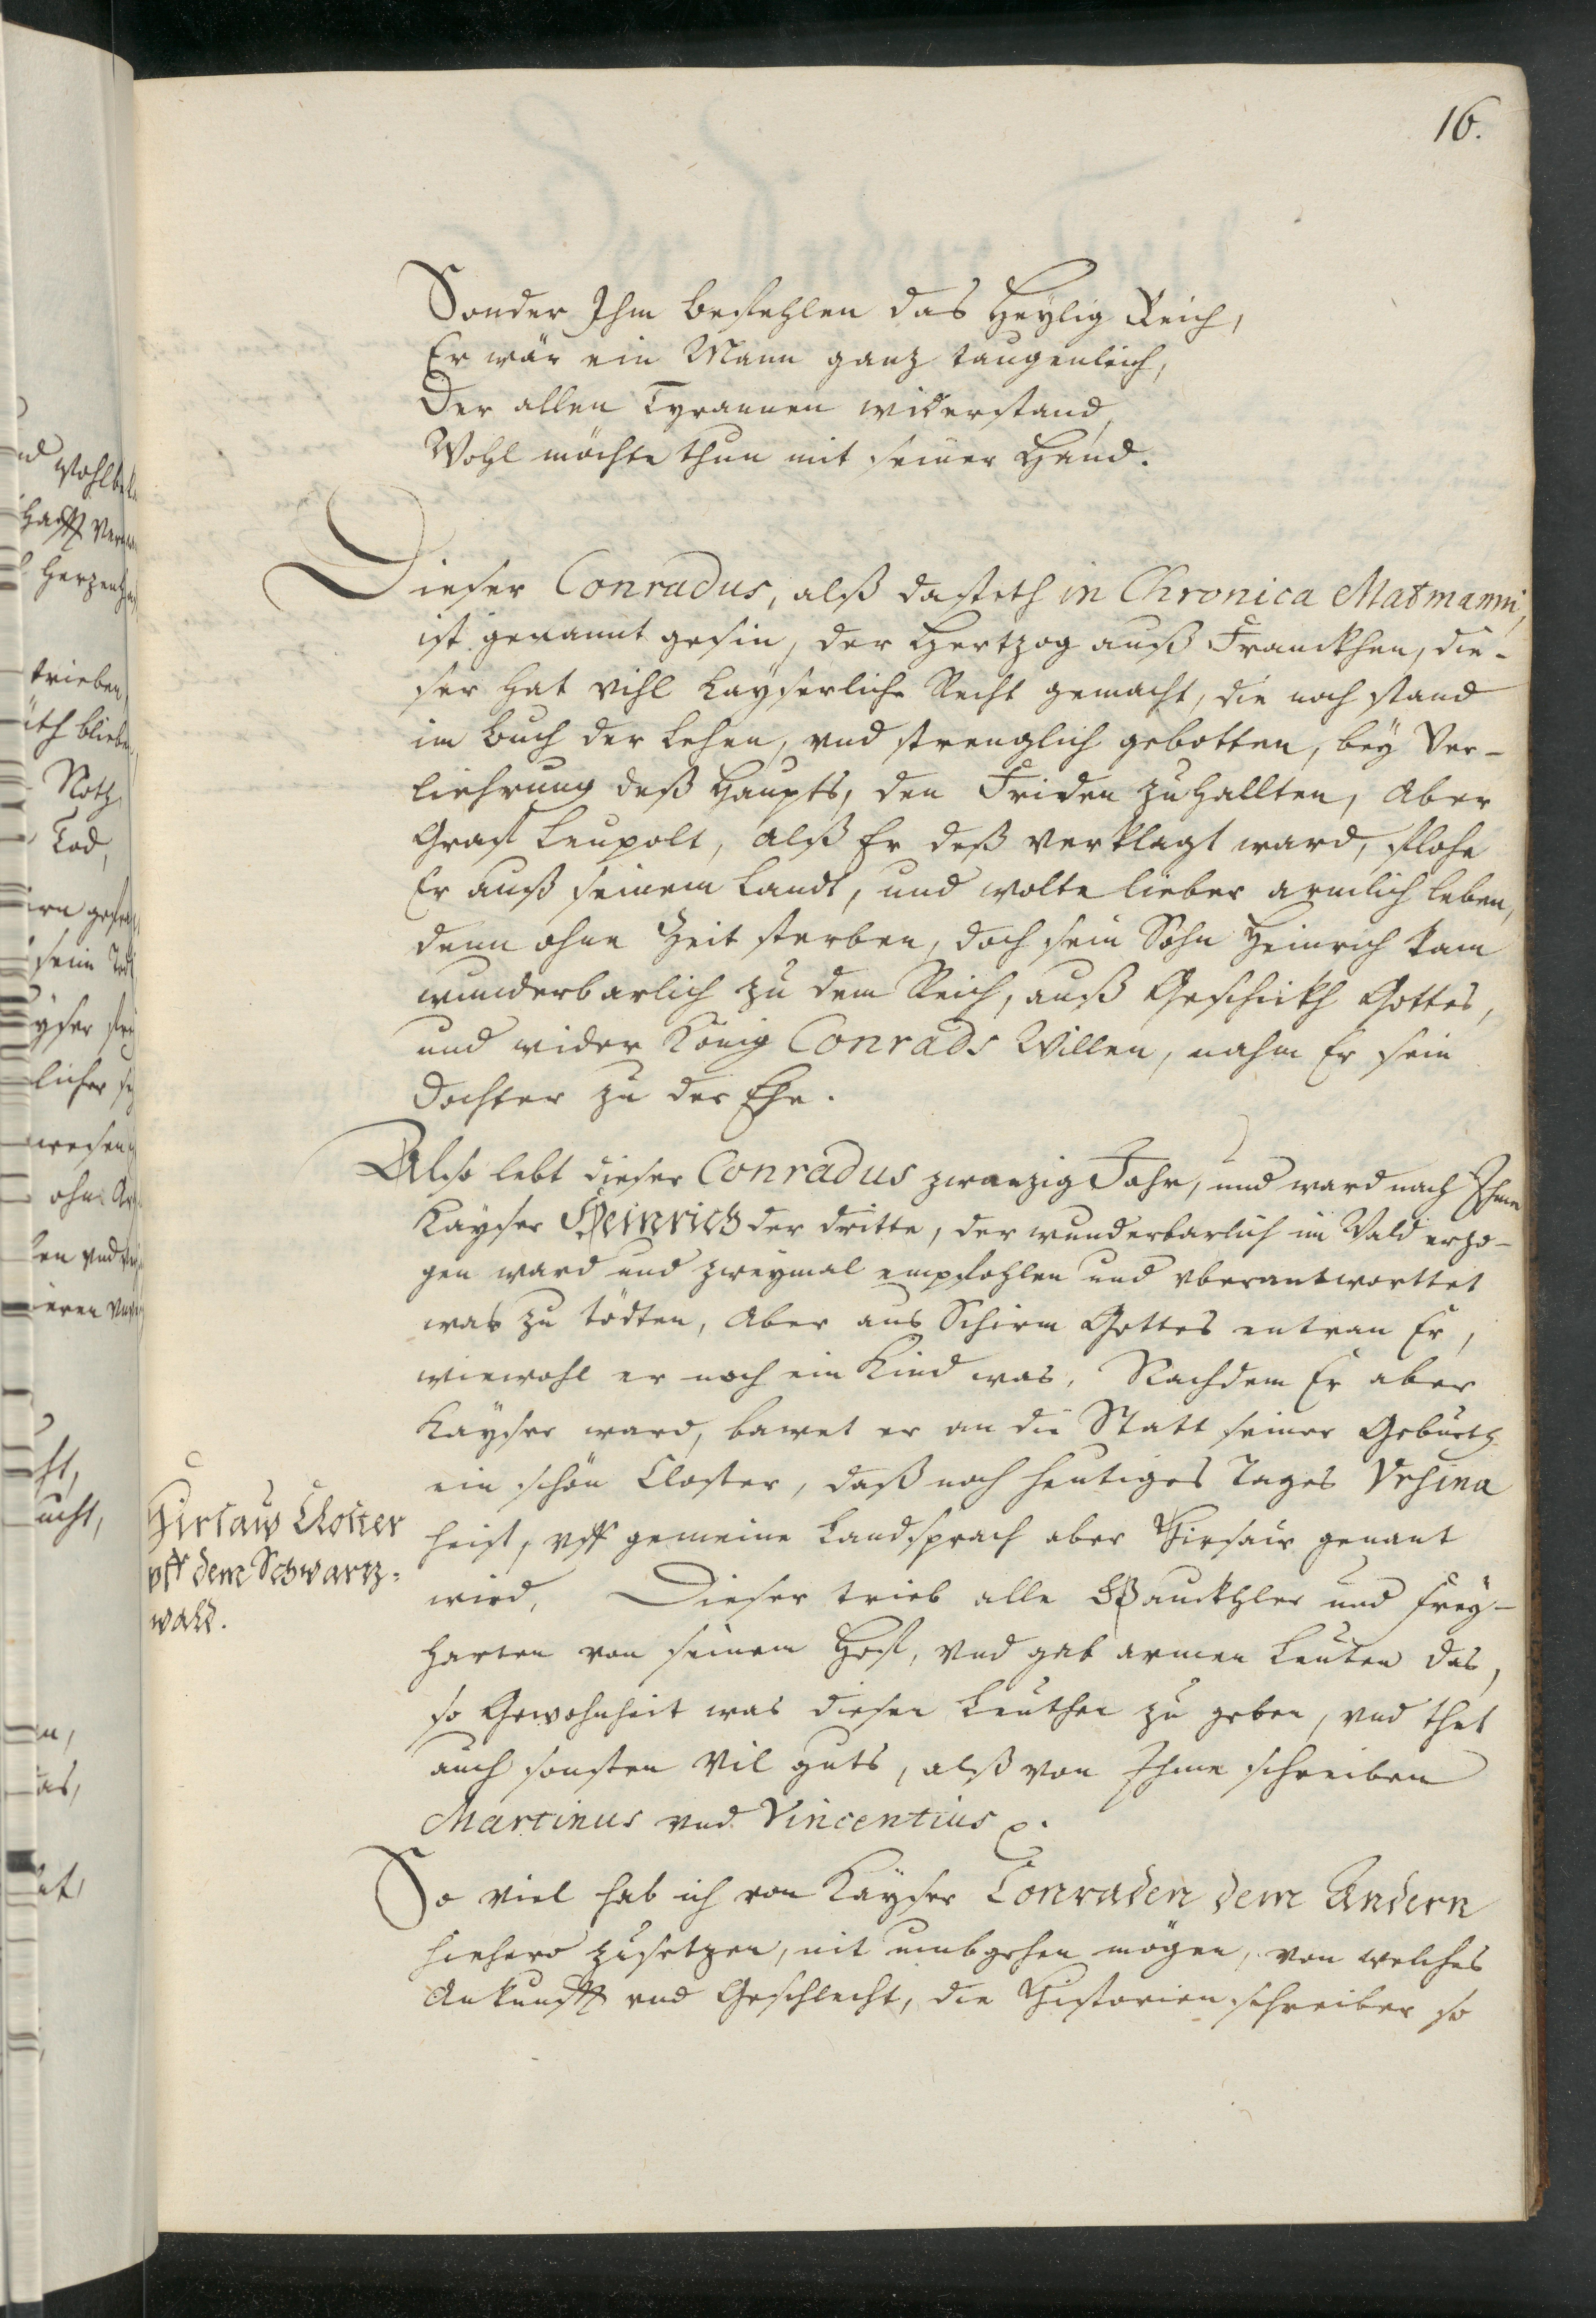 16.
Sonder Ihm befehlen das Heylig Reich,
Er wär ein Mann ganz taugenlich,
Der allen Tyrannen widerstand,
Wohl möchte thun mit seiner Hand.
Dieser Conradus, alß dasteth in Chronica Matmanni,
ist genannt gesin, der Hertzog auß Franckhen, die-
ser hat vihl Kayserliche Recht gemacht, die noch stand
im Buch der Lehen, vnd strenglich gebotten, bey Ver-
liehrung deß Haupts, den Friden zu hallten, Aber
Graf Leupolt, alß Er deß verklagt ward, flohe
Er auß seinem Landt, und wolte lieber armlich leben,
denn ohne Zeit sterben, doch sein Sohn Heinrich kam
wunderbarlich zu dem Reich, auß Geschickh Gottes,
und wider König Conrads Willen, nahm Er sein
Dochter zu der Ehe.
Also lebt dieser Conradus zwanzig Jahr, und ward nach Ihme
Kayser Heinrich der dritte, der wunderbarlich im Wald erzo-
gen ward und zweymal empfohlen und vberantworttet
was zu tödten, Aber aus Schirm Gottes entran Er,
wiewohl er noch ein Kind was. Nachdem Er aber
Kayser ward, bawet er an die Statt seiner Geburth
ein schön Closter, daß noch heutiges Tages Vrsina
heist, vff gemeine Landsprach aber Hirsaw genant
wird. Dieser trieb alle Gauckhler und frey-
harten von seinem Hof, vnd gab armen Leuten das,
so Gewohnheit was diesen Leuthen zu geben, vnd thet
auch sonsten Vil guts, alß von Ihme schreiben
Martinus vnd Vincentius p.
Hirsaw Closter
vff dem Schwartz-
wald.
So viel hab ich von Kayser Conraden dem Andern
hiehero zusetzen, nit umbgehen mögen, von welches
Ankunfft vnd Geschlecht, die Historienschreiber so